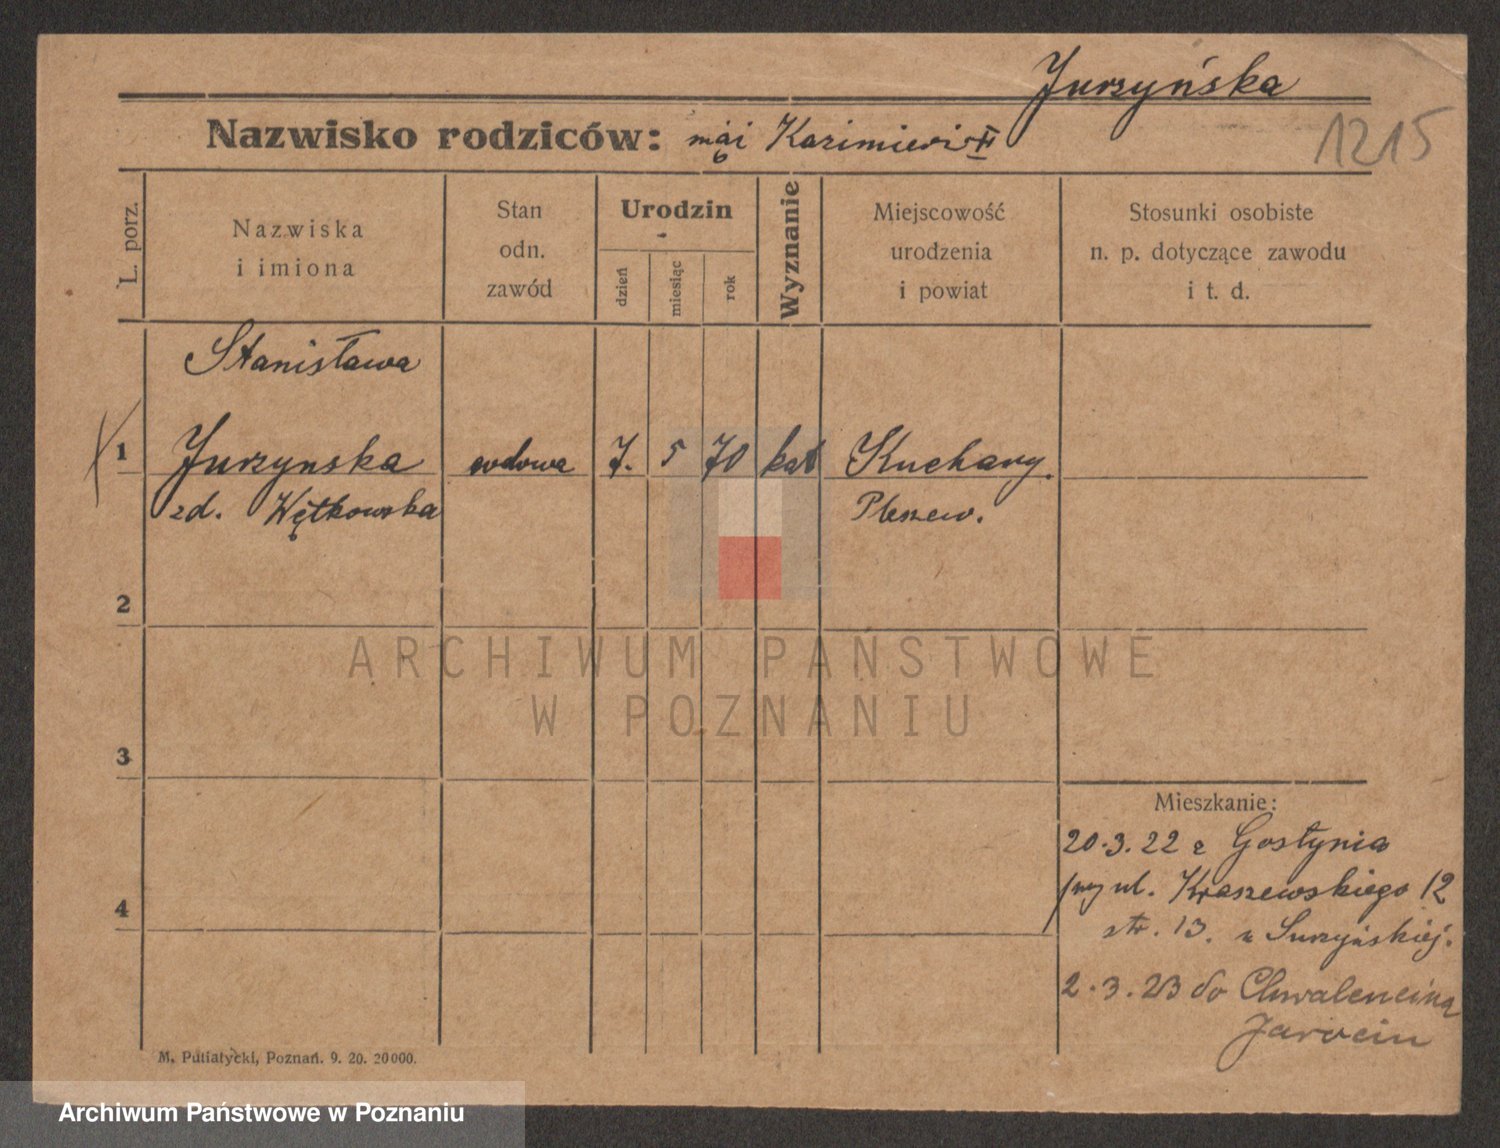 Jurzyńska
Nazwisko rodziców: mąż Kazimierz †
1215
L. porz.
Nazwiska
i imiona
Stan
odn.
zawód
Urodzin
dzień
miesiąc
rok
Wyznanie
Miejscowość
urodzenia
i powiat
Stosunki osobiste
n. p. dotyczące zawodu
i t. d.
Stanisława
1 Jurzynska wdowa 7. 5 70 kat Kuchary.
zd. Wętkowska Pleszew.
2
3
4
Mieszkanie:
20.3.22 z Gostynia
przy ul. Kraszewskiego 12
str. 13. u Surzyńskiej.
2.3.23 do Chwalencina
Jarocin
M. Putiatycki, Poznań. 9. 20. 20000.
ARCHIWUM PAŃSTWOWE
W POZNANIU
Archiwum Państwowe w Poznaniu